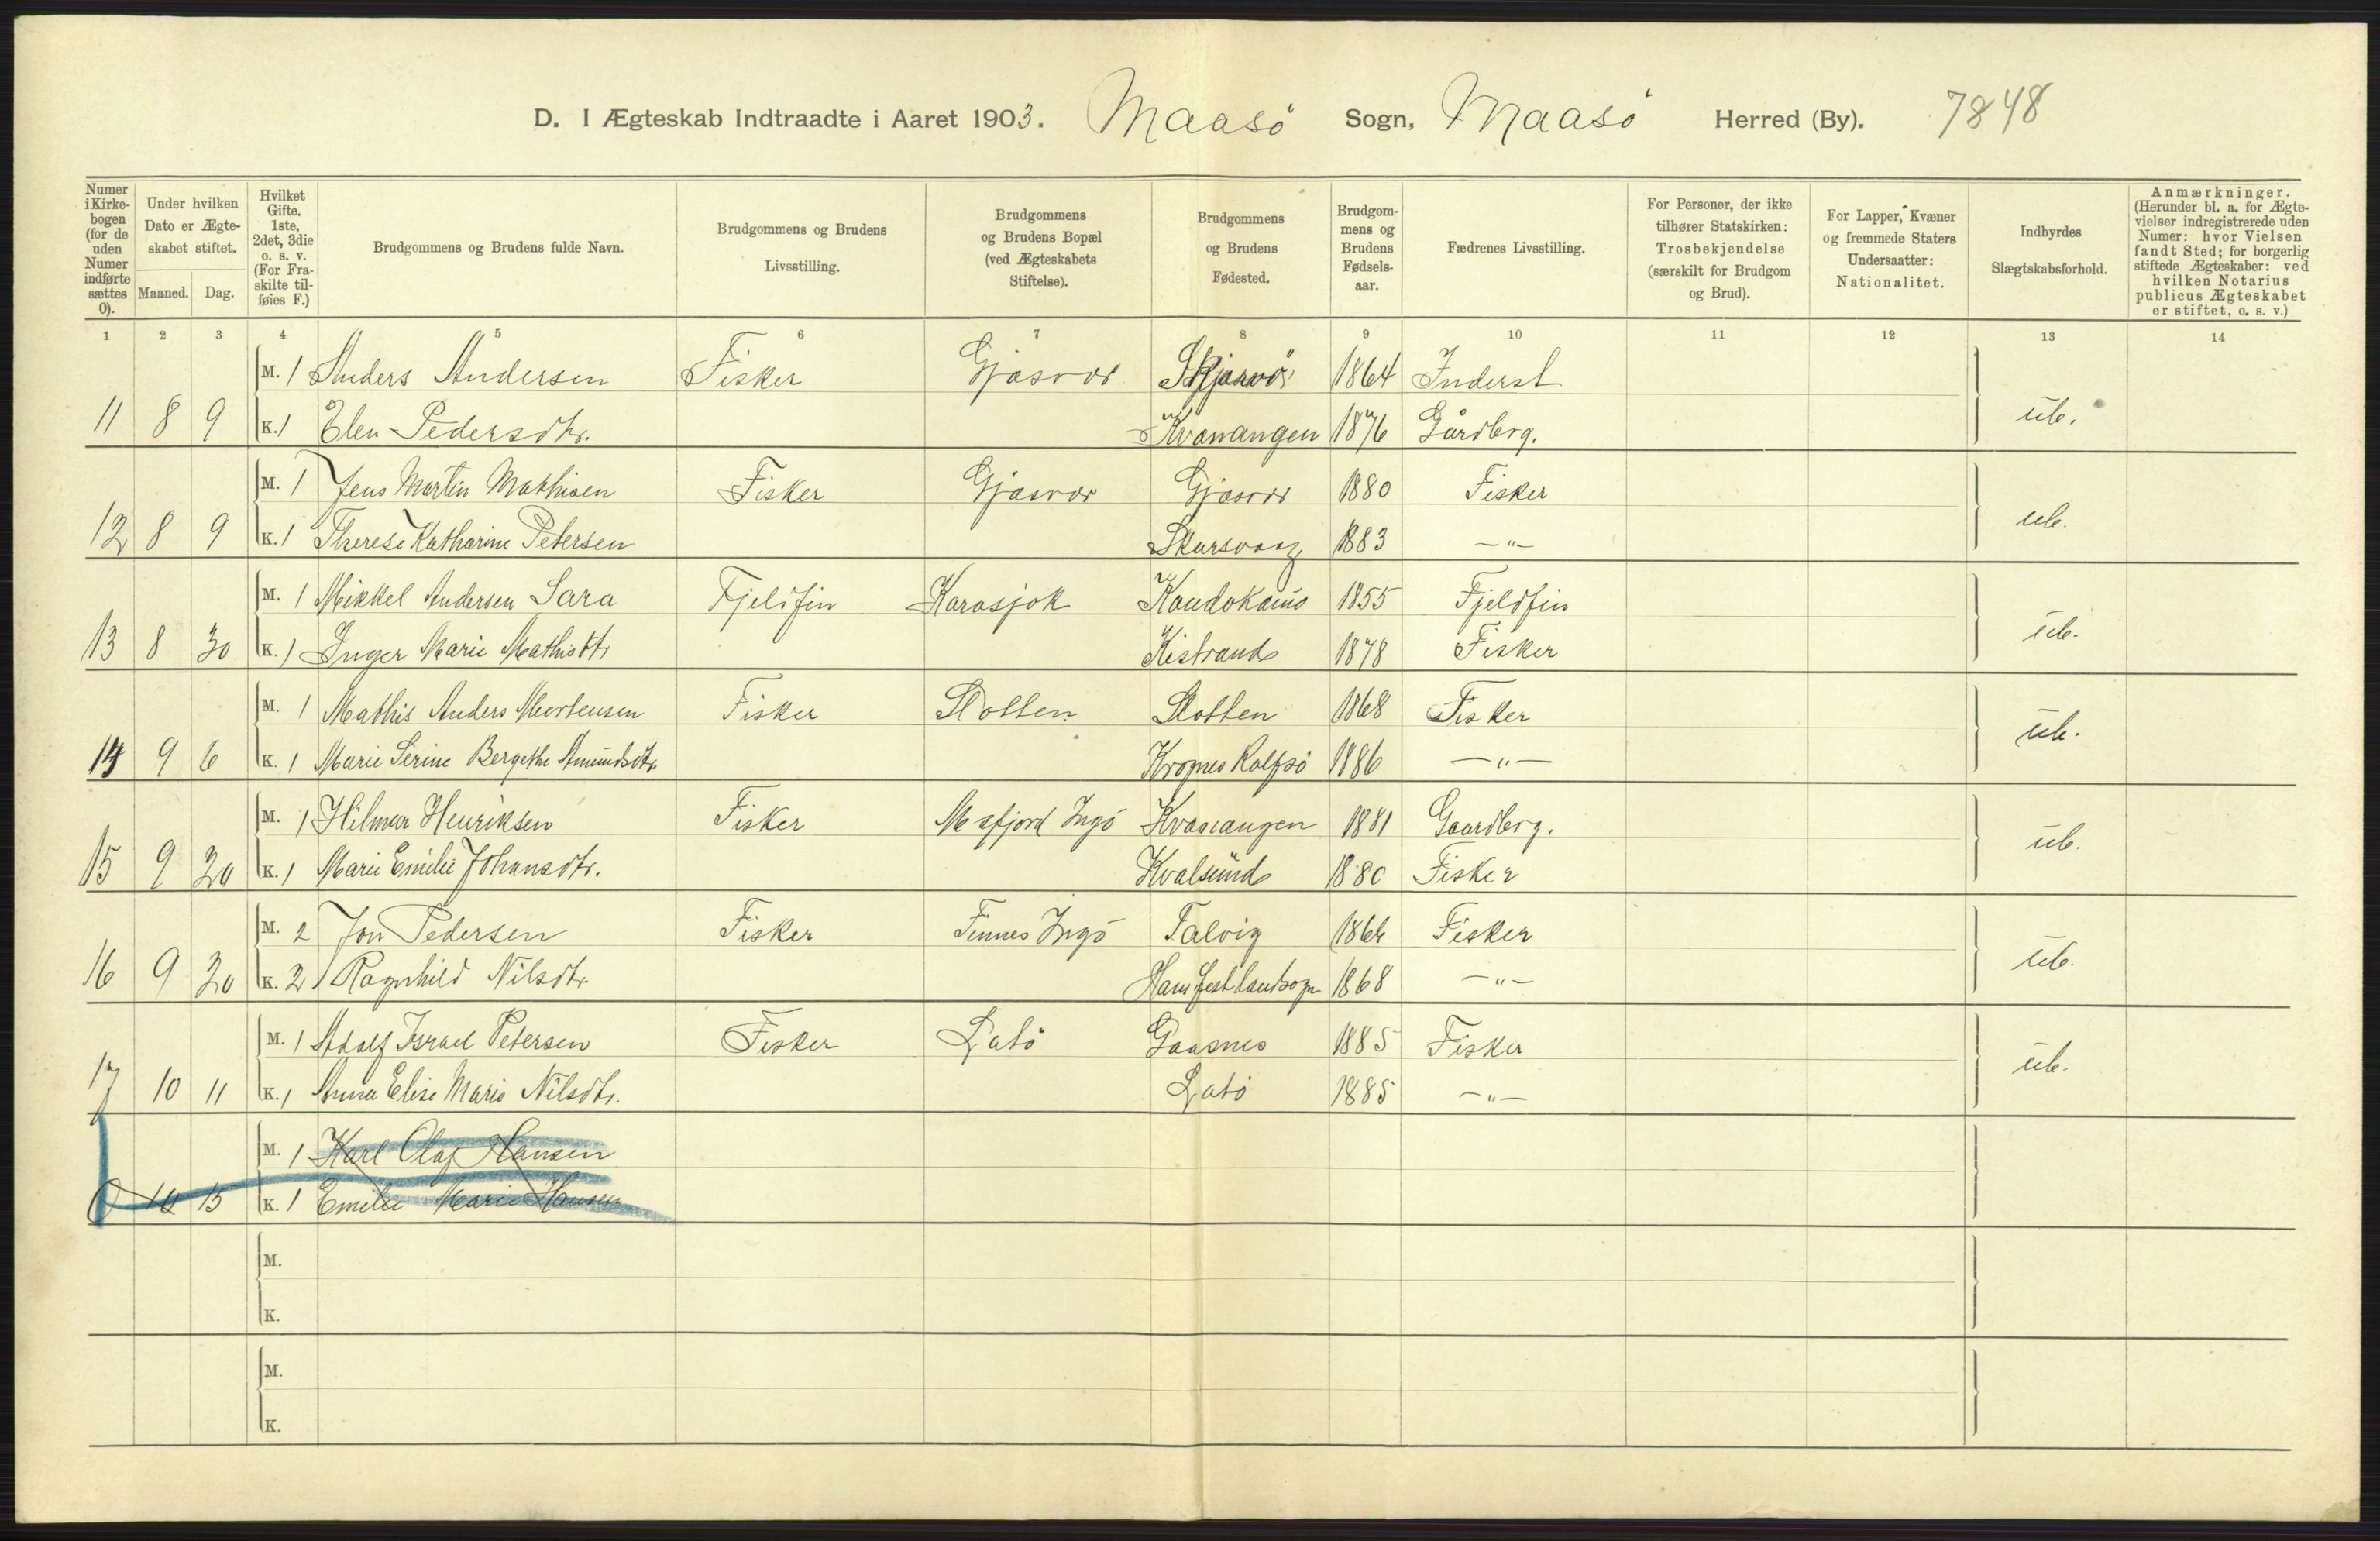 D. I Ægteskab Indtraadte i Aaret 1903. Maasö Sogn, Maasö Herred (By). 7848
Numer i Kirkebogen (for de uden Numer indførte sættes 0).
Under hvilken Dato er Ægteskabet stiftet.
Maaned. Dag.
Hvilket Gifte. 1ste, 2det, 3die o. s. v. (For Fraskilte tilføies F.)
Brudgommens og Brudens fulde Navn.
Brudgommens og Brudens Livsstilling.
Brudgommens og Brudens Bopæl (ved Ægteskabets Stiftelse).
Brudgommens og Brudens Fødested.
Brudgommens og Brudens Fødselsaar.
Fædrenes Livsstilling.
For Personer, der ikke tilhører Statskirken: Trosbekjendelse (særskilt for Brudgom og Brud).
For Lapper, Kvæner og fremmede Staters Undersaatter: Nationalitet.
Indbyrdes Slægtskabsforhold.
Anmærkninger. (Herunder bl. a. for Ægtevielser indregistrerede uden Numer: hvor Vielsen fandt Sted; for borgerlig stiftede Ægteskaber: ved hvilken Notarius publicus Ægteskabet er stiftet, o. s. v.)
1 2 3 4 5 6 7 8 9 10 11 12 13 14
M. 1 Anders Andersen Fisker Gjæsvær Skjærvö 1864 Inderst
11 8 9 K. 1 Elen Pedersdtr. Kvænangen 1876 Gårdbrg. ub.
M. 1 Jens Martin Mathisen Fisker Gjæsvær Gjæsvær 1880 Fisker
12 8 9 K. 1 Therese Katharine Petersen Skarsvaag 1883 —"— ub.
M. 1 Mikkel Andersen Sara Fjeldfin Karasjok Kaudokeino 1855 Fjeldfin
13 8 30 K. 1 Inger Marie Mathisdtr Kistrand 1878 Fisker ub.
M. 1 Mathis Anders Mortensen Fisker Slotten Slotten 1868 Fisker
14 9 6 K. 1 Marie Serine Bergethe Amundsdtr. Rolfsö 1886 —"— ub.
M. 1 Hilmar Henriksen Fisker Mafjord Ingö Kvænangen 1881 Gaardbrg.
15 9 20 K. 1 Marie Emilie Johansdtr. Kvalsund 1880 Fisker ub.
M. 2 Jon Pedersen Fisker Finnes Ingö Talvig Fisker
16 9 20 K. 2 Ragnhild Nilsdtr. Hamfest landsogn 1868 —"— ub.
M. 1 Adolf Israel Petersen Fisker Latö Gaasnes 1885 Fisker
17 10 11 K. 1 Anna Elise Marie Nilsdtr. Latö 1885 —"— ub.
M. 1 Karl Olaf Hansen
0 10 15 K. 1 Emilie Marie Hansen
M.
K.
M.
K.